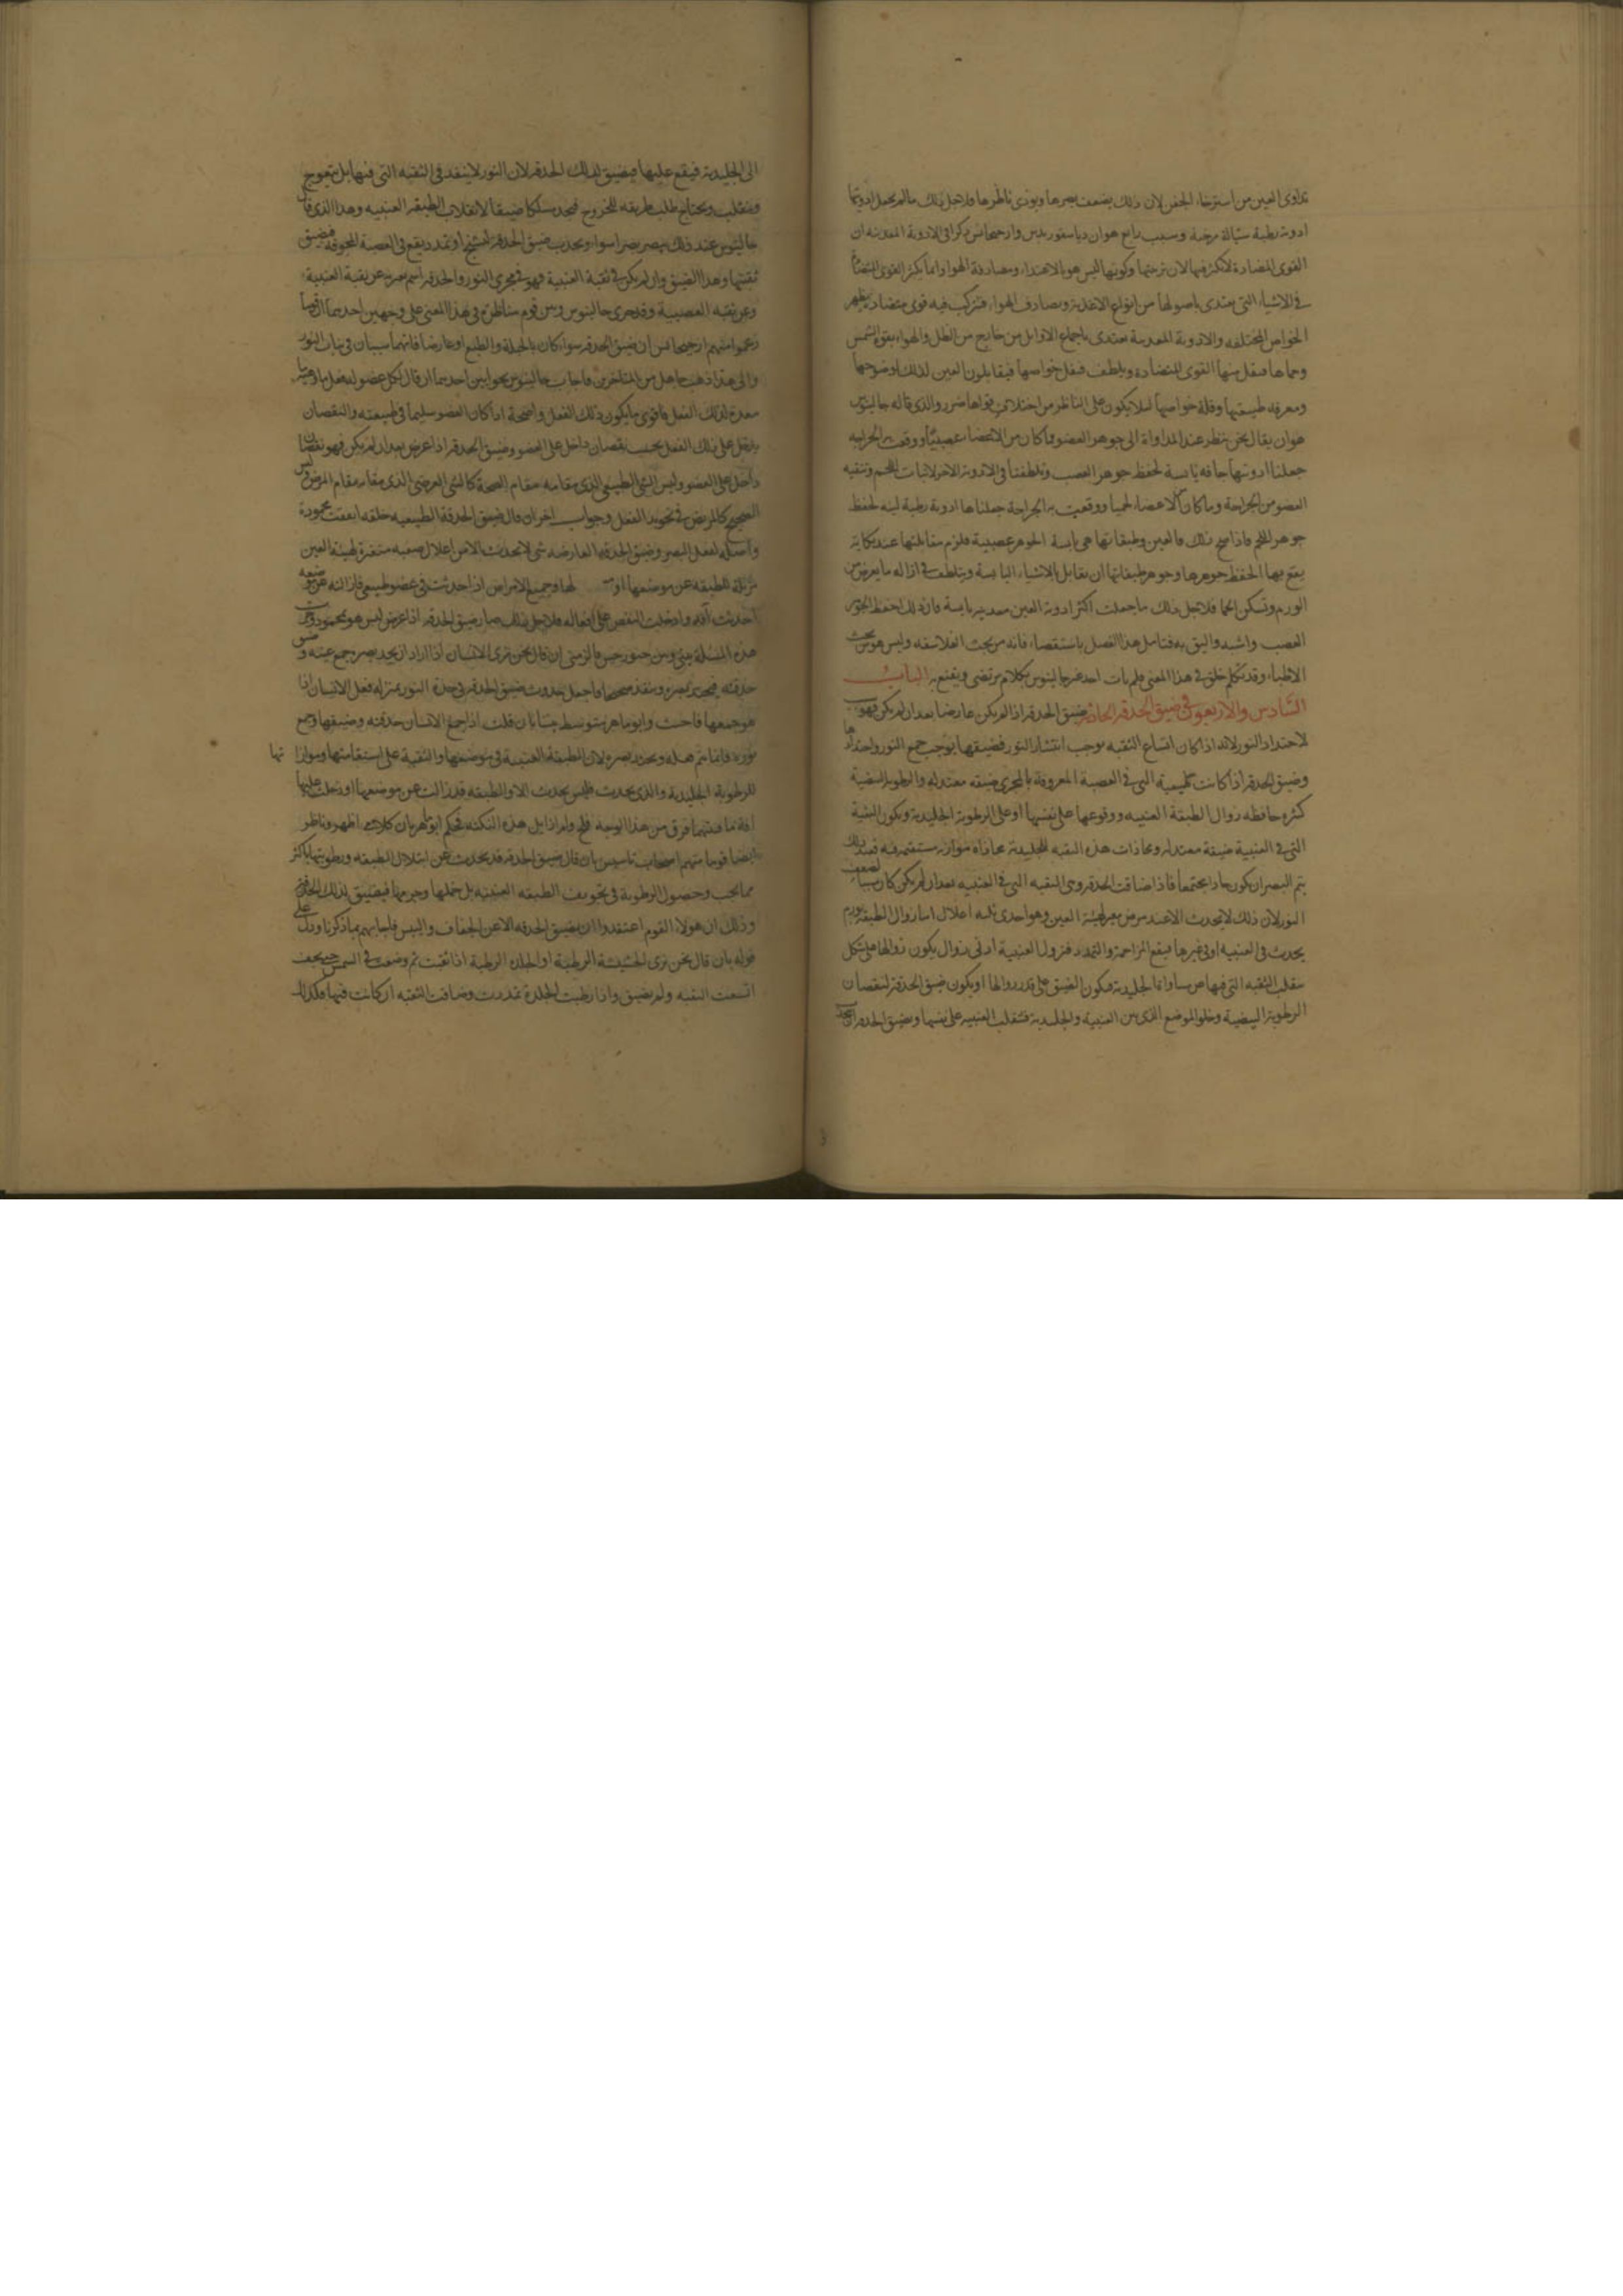 تداوى العين من استرخاء الجفن لان ذلك يضعف بصرها ويوذى ناظرها فلاجل ذلك ما لم يجعل ادويتها
ادوية رطبة سيالة مرخية وسبب رابع هو ان دياسقوريدس وارجيجانس ذكرا فى الادوية المعدنيه ان
القوى المتضادة لا تكثر فيها لان تربتها وكونها ليس هو بالاغتذاء ومصادفة الهوا وانما يكثر القوى المتضادة
فى الاشياء التى يغتذى باصولها من انواع الاغذية وتصادف الهواء فتركب فيه قوى متضادة فيظهر
الخواص المختلفه والادوية المعدنية يغتدى باجماع الاوايل من خارج من الطل والهواء بقوة الشمس
وحماها فيقل منها القوى المتضادة ويلطف فيقل خواصها فيقابلون العين لذلك لوضوحها
ومعرفه طبيعتها وقلة خواصها ليلا يكون على الناظر من اختلاف قواها ضرر والذى قاله جالينوس
هو ان يقال نحن ننظر عند المداواة الى جوهر العضو فما كان من الاعضاء عصبيًا ووقعت به الجراحه
جعلنا ادويتها جافه يابسة لحفظ جوهر العصب وتلطفنا فى الادوية الاخر لانبات اللحم وتنقيه
العضو من الجراحة وما كان من الاعضاء لحميا ووقعت به الجراحة جعلناها ادوية رطبة لينه لحفظ
جوهر اللحم فاذا صح ذلك فالعين وطبقاتها هى يابسة الجوهر عصبية فلزم مقابلتها عند نكاية
يقع بها لحفظ جوهرها وجوهر طبقاتها ان يقابل بالاشياء اليابسة ويتلطف فى ازاله ما يعرض من
الورم وتسكن الحما فلاجل ذلك ما جعلت اكثر ادوية العين معدنيه يابسة فان ذلك احفظ لجوهر
العصب واشبه واليق به فتامل هذا الفصل باستقصاء فانه من بحث الفلاسفه وليس هو من بحث
الاطباء وقد تكلم خلق فى هذا المعنى فلم يات احد غير جالينوس بكلام يرتضى ويقتنع به الباب
السّادس والاربعون فى ضيق الحدقه الحادثه ضيق الحدقه اذا لم يكن عارضا بعد ان لم يكن فهو سبب
لاحتداد النور لانه اذا كان اتساع الثقبه يوجب انتشار النور فضيقها يوجب جمع النور واحتداده
وضيق الحدقه اذا كانت طبيعية التى فى العصبة المعروفة بالمجرى ضيقه معتدله والرطوبة البيضية
كثيره حافظه زوال الطبقة العنبيه ووقوعها على نفسها او على الرطوبة الجليدية وتكون الثقبة
التى فى العنبية ضيقة معتدله ومحاذات هذه الثقبه للجليدية محاذاة موازنه مستقيمه فعند ذلك
يتم البصر ان يكون حادا مجتمعا فاذا ضاقت الحدقه وهى الثقبه التى فى العنبيه بعد ان لم يكن كان سببا لضعف
النور لان ذلك لا يحدث الا عند مرض يغير لهيئة العين وهو احدى ثلثه اعلال اما زوال الطبقه بورم
يحدث فى العنبيه او فى غيرها فيقع المزاحمة والتمدد فتزول العنبية ادنى زوال يكون زوالها على شكل
ينقلب الثقبه التى فيها عن مساواتها الجليدية فيكون الضيق على قدر زوالها او يكون ضيق الحدقه لنقصان
الرطوبة البيضية وخلو الموضع الذى بين العنبية والجليدية فتنقلب العنبيه على نفسها ويضيق الحدقه او
الى الجليدية فيقع عليها فيضيق لذلك الحدقه لان النور لا ينفذ فى الثقبه التى فيها بل يتعوج
وينقلب ويحتاج طلب طريقه للخروج فيجد مسلكا ضيقا لانقلاب الطبقه العنبيه وهذا الذى قال
جالينوس عند ذلك يبصر بصراً سواء ويحدث ضيق الحدقه لتشنج او تمدد يقع فى العصبة المجوفه فيضيق
ثقبتها وهذا الضيق وان لم يكن فى ثقبة العنبية فهو فى مجرى النور والحدقه اسم يعبر به عن ثقبة العنبية
وعن ثقبه العصبية وقد جرى بين جالينوس وبين قوم مناظرة فى هذا المعنى على وجهين احدهما ان قوما
زعموا منهم ارجيجانس ان ضيق الحدقه سواء كان بالجبلة والطبع او عارضا فانهما سببان فى ثبات النور
والى هذا ذهب جاهل من المتاخرين فاجاب جالينوس بجوابين احدهما ان قال لكل عضو له فعل ما وهيئة
معدة لذلك الفعل فاقوى ما يكون ذلك الفعل واصحة اذا كان العضو سليما فى طبيعته والنقصان
يدخل على ذلك الفعل بحسب نقصان داخل على العضو وضيق الحدقه اذا عرض بعد ان لم يكن فهو نقصان
داخل على العضو وليس الشى الطبيعى الذى مقامه مقام الصحة كالشى العرضى الذى مقامه مقام المرض وليس
الصحيح كالمريض فى تجويد الفعل وجواب اخر ان قال ضيق الحدقة الطبيعيه خلقه اتفقت محمودة
واصله لفعل البصر وضيق الحدقه العارضه شى لا يحدث الا من اعلال صعبه متغيرة لهيئة العين
مزيلة للطبقه عن موضعها او لها وجميع الامراض اذا حدثت فى عضو طبيعى فازالته عن موضعه
احدثت آفه وادخلت النقص على افعاله فلاجل ذلك صار ضيق الحدقه اذا عرض ليس هو بمحمود وجرت
هذه المسئلة بينى وبين حبور حبس فالزمنى ان قال نحن نرى الانسان اذا اراد ان يحد بصره جمع عينه وضيق
حدقته فيحتد بصره وينفذ صحيحا فاجعل حدوث ضيق الحدقه فى حدة النور بمنزلة فعل الانسان اذا
هو جمعها فاحث وابو ماهر يتوسط بيننا بان قلت اذا جمع الانسان حدقته وضيقها وجمع
نوره فانما يتم فعله ويحتد بصره لان الطبقة العنبية فى موضعها والثقبة على استقامتها وموازاتها
للرطوبة الجليدية والذى يحدث فليس يحدث الا والطبقه قد زالت عن موضعها او دخلت عليها
افة ما فبينهما فرق من هذا الوجه فلج ولم ازايل هذه النكته فحكم ابو ماهر بان كلامى اظهر وناظر
ايضا قوما منهم اصحاب تاسيس بان قال ضيق الحدقه قد يحدث عن ابتلال الطبقه ورطوبتها باكثر
مما يجب وحصول الرطوبة فى تجويف الطبقه العنبيه بل خملها وجرمها فيضيق لذلك الحدقه
وذلك ان هولاء القوم اعتقدوا ان يضيق الحدقه الا عن الجفاف واليبس فاجابهم بما ذكرنا ودل على
قوله بان قال نحن نرى الحشيشة الرطبة او الجلده الرطبة اذا ثقبت ثم وضعت فى الشمس حتى يجف
اتسعت الثقبه ولم يضيق واذا رطبت الجلدة تمددت وضاقت الثقبه ان كانت فيها فكذلك